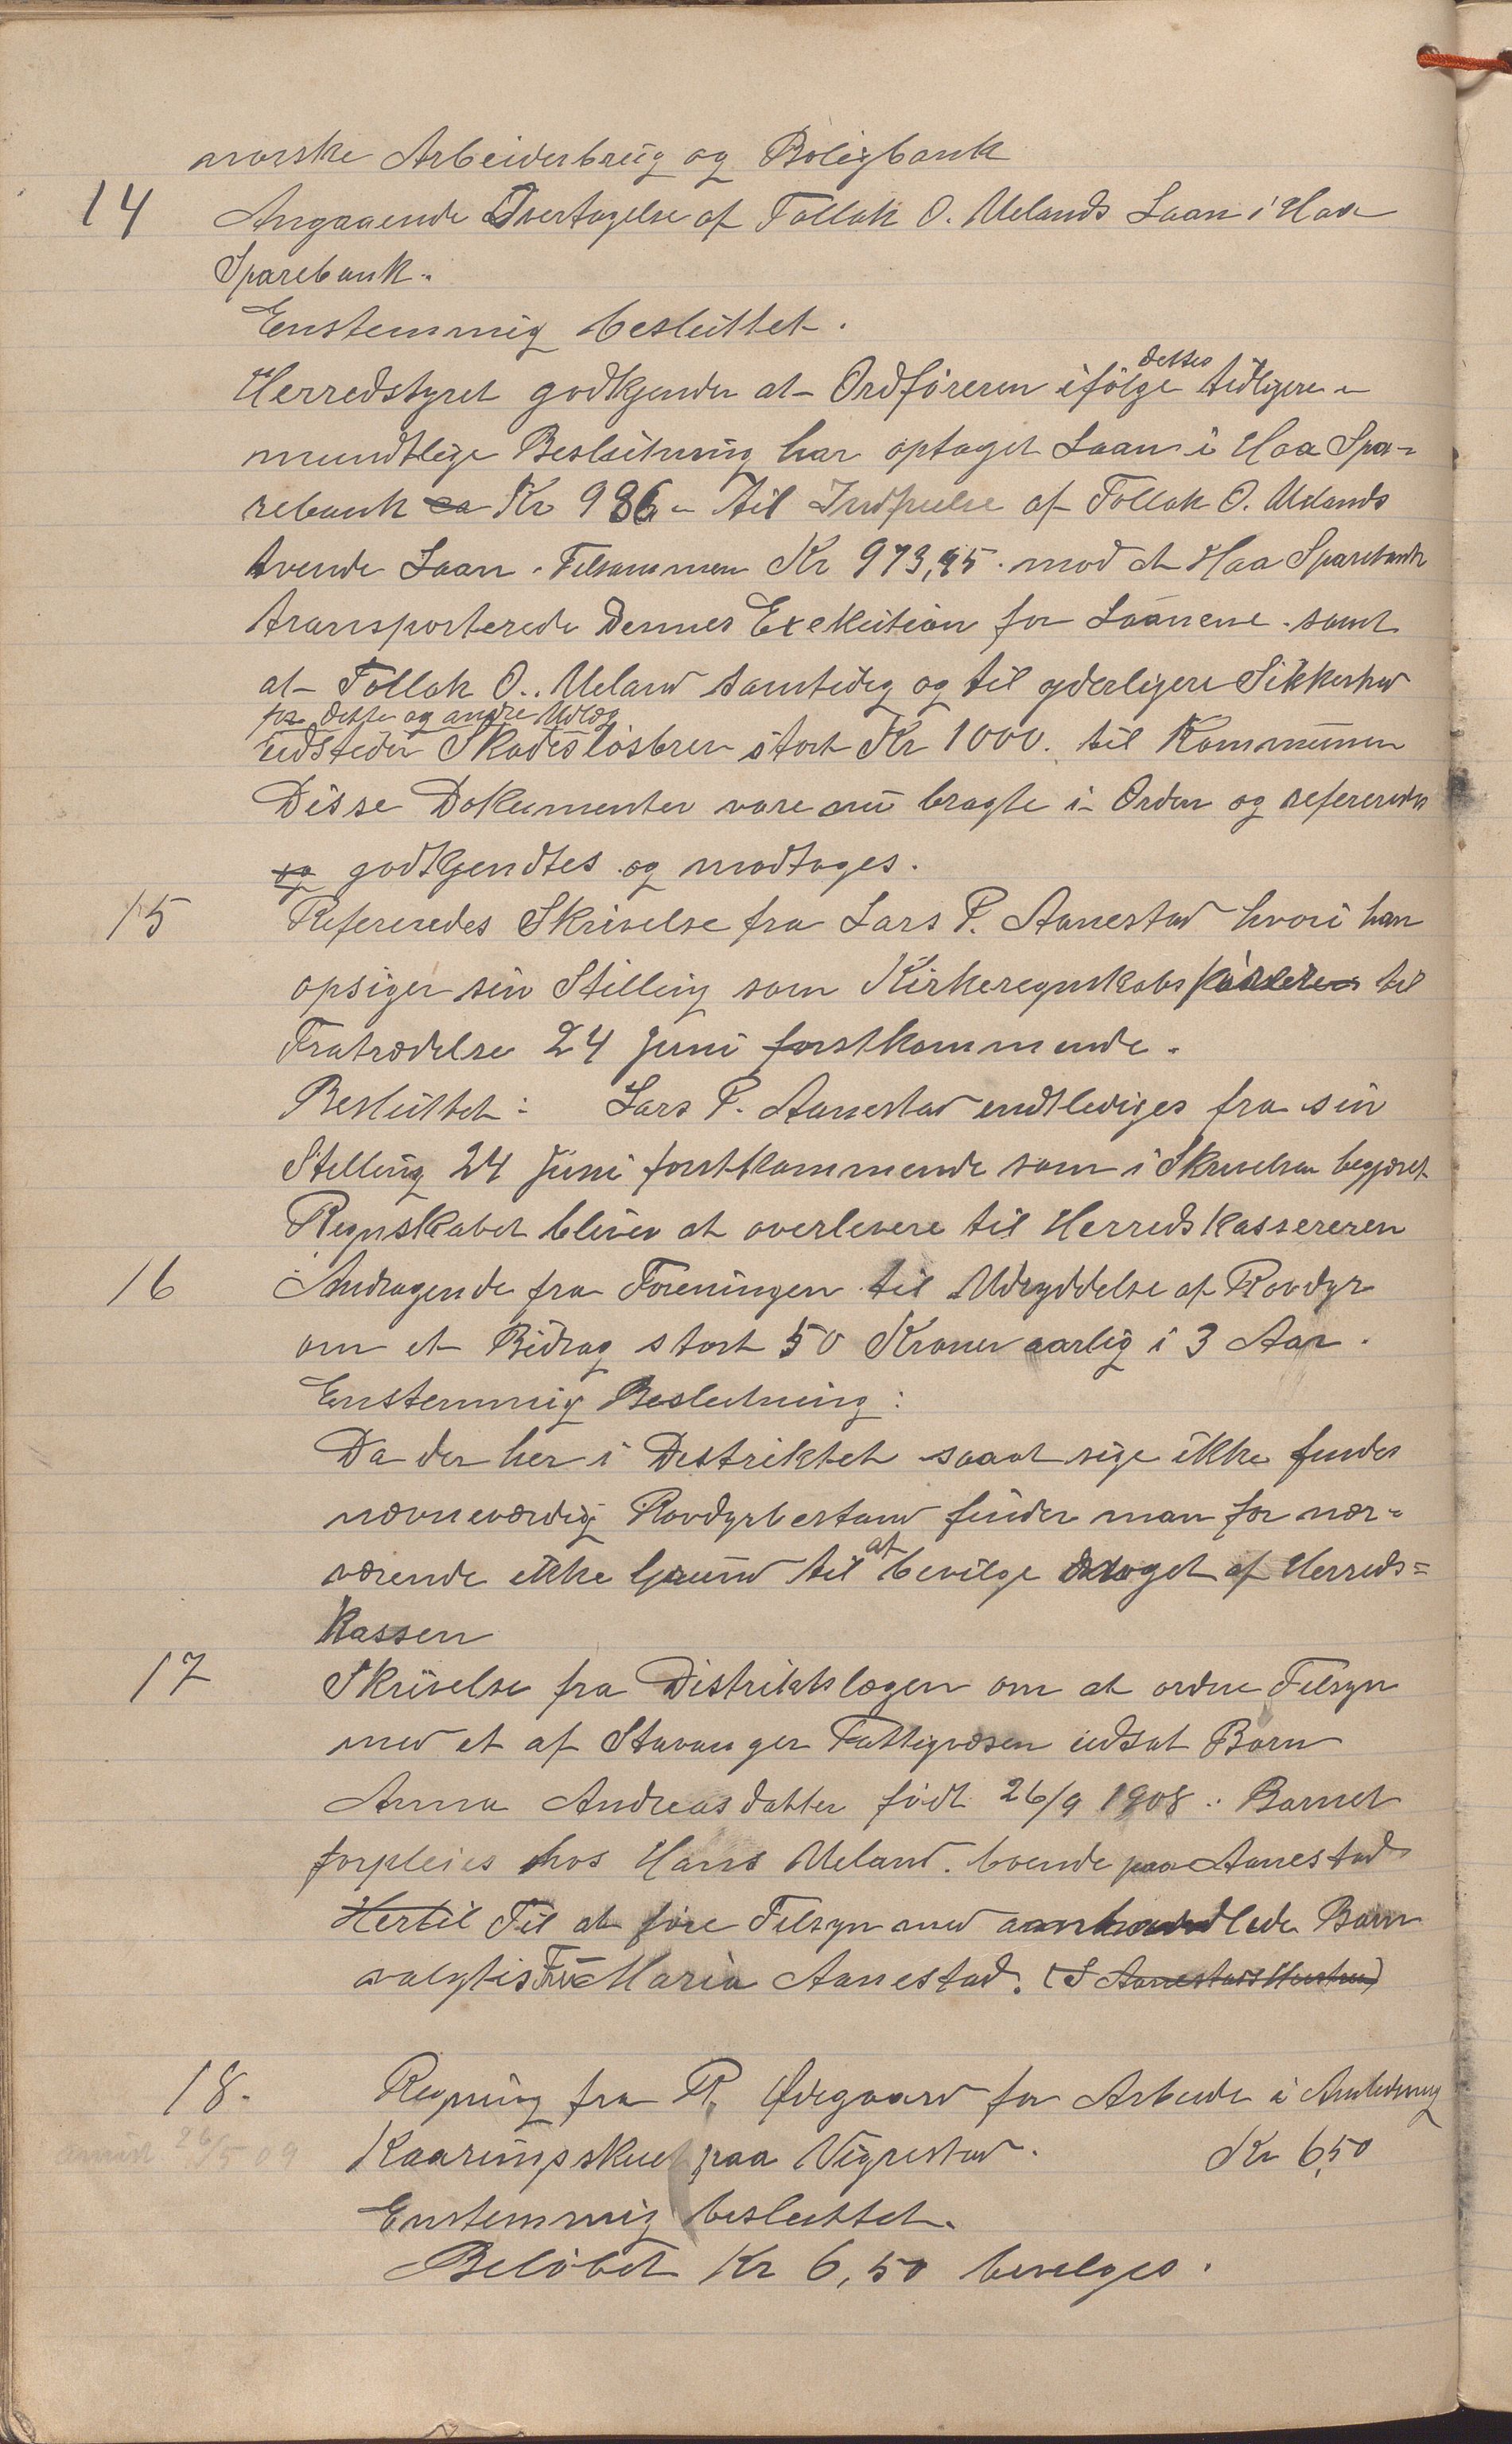 norske Arbeiderbrug og Boligbank
14 Angaaende Overtagelse af Tollak O. Uelands Laan i Haa
Sparebank.
Enstemmig besluttet.
Herredstyret godkjender at Ordføreren ifølge dettes tidligere
mundtlige Beslutning har optaget Laan i Haa Spa-
rebank Kr 986 - til Indfrielse af Tollak O. Uelands
tvende Laan. Tilsammen Kr 973,95. mod at Haa Sparebank
transporterede Dennes Exekution for Laanene. samt
at Tollak O. Ueland samtidig og til yderligere Sikkerhed
for dette og andre Udlæg
udsteder Skadesløsbrev stort Kr 1000. til Kommunen
Disse Dokumenter vare nu bragte i Orden og refereredes
og godkjendtes og modtages.
15 Refereredes Skrivelse fra Lars P. Aanestad hvori han
opsiger sin Stilling som Kirkeregnskabs til
Fratrædelse 24 Juni førstkommende.
Besluttet: Lars P. Aanestad endtlediges fra sin
Stilling 24 Juni førstkommende som i Skrivelsen begjæret
Regnskabet bliver at overlevere til Herredskassereren
16 Andragende fra Foreningen til Udryddelse af Rovdyr
om et Bidrag stort 50 Kroner aarlig i 3 Aar.
Enstemmig Beslutning:
Da der her i Destriktet saaat sige ikke findes
nævneværdig Rovdyrbestand finder man for nær-
værende ikke Grund til at bevilge noget af Herreds=
kassen
17 Skrivelse fra Distriktslægen om at ordne Tilsyn
med et af Stavanger Fattigvæsen udsat Barn
Anna Andreasdatter født 26/9 1908. Barnet
forpleies hos Hans Ueland. boende paa Aanestad
Hertil Til at føre Tilsyn med omhandlede Barn
valgtes Fru Maria Aanestad. (S Aanestads Hustru)
18. Regning fra R. Ødegaard for Arbeide i Anledning
26/5 09 Kaaringsskuet paa Vigrestad. Kr 6,50
Enstemmig besluttet.
Beløbet Kr 6,50 bevilges.